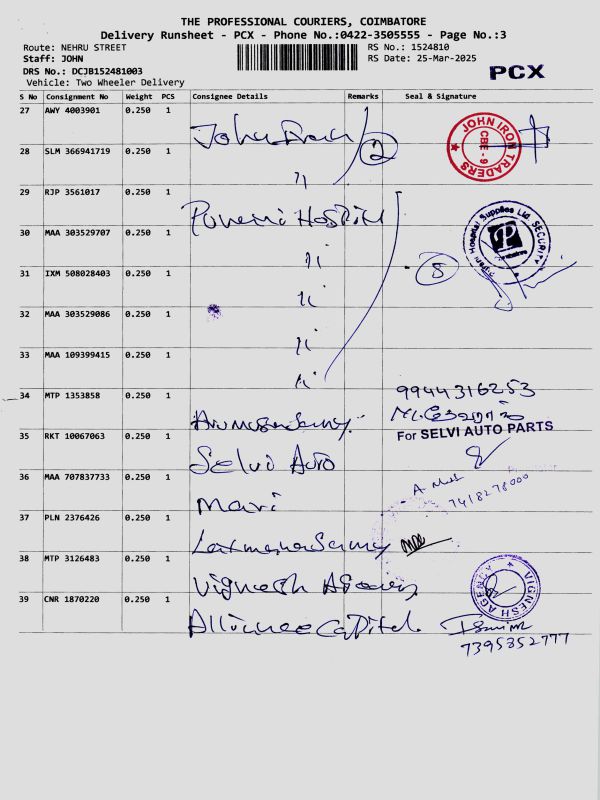 THE PROFESSIONAL COURIERS, COIMBATORE
Delivery Runsheet - PCX - Phone No.:0422-3505555 - Page No.:3
Route: NEHRU STREET RS No.: 1524810
Staff: JOHN RS Date: 25-Mar-2025
DRS No.: DCJB152481003 PCX
Vehicle: Two Wheeler Delivery
S No Consignment No Weight PCS Consignee Details Remarks Seal & Signature
27 AWY 4003901 0.250 1
JOHN IRON TRADERS CBE - 9
2
28 SLM 366941719 0.250 1
〃
29 RJP 3561017 0.250 1 Hospital
Hospital Supplies Ltd. SECURITY
30 MAA 303529707 0.250 1
〃
31 IXM 508028403 0.250 1
5
〃
32 MAA 303529086 0.250 1
〃
33 MAA 109399415 0.250 1
〃
34 MTP 1353858 0.250 1 9944316253
For SELVI AUTO PARTS
35 RKT 10067063 0.250 1 Selvi Auto
36 MAA 707837733 0.250 1 Mari
7418278000
37 PLN 2376426 0.250 1 Laxmanasamy
38 MTP 3126483 0.250 1 Vignesh Agency
VIGNESH AGENCY
39 CNR 1870220 0.250 1 Alliance Capital
7395352777